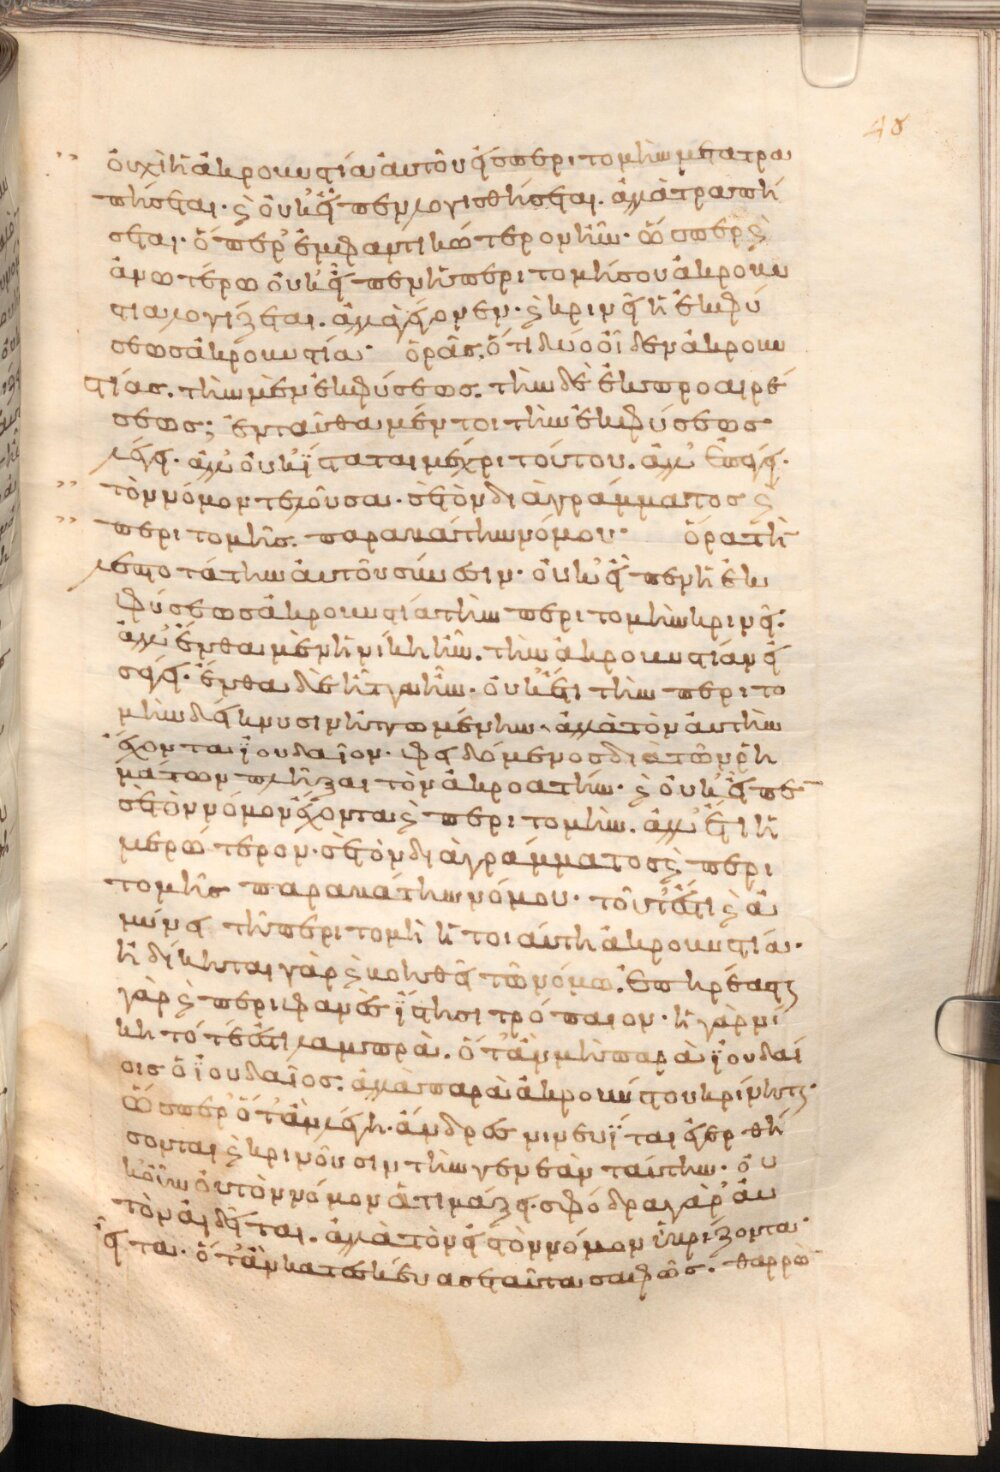 48
οὐχὶ ἡ ἀκροβυστία αὐτοῦ εἰς περιτομὴν μετατρα
πήσεται. καὶ οὐκ εἶπεν λογισθήσεται. ἀλλὰ τραπή
σεται. ὅπερ ἐμφαντικώτερον ἦν. ὥσπερ καὶ
ἀνωτέρω οὐκ εἶπεν ἡ περιτομή σου ἀκροβυ
στία λογίζεται. ἀλλὰ γέγονεν. καὶ κρινεῖ ἡ ἐκ φύ
σεως ἀκροβυστία· ὁρᾶς. ὅτι δύο οἶδεν ἀκροβυ
στίας. τὴν μὲν ἐκ φύσεως. τὴν δὲ ἐκ προαιρέ
σεως; ἐνταῦθα μέντοι τὴν ἐκ φύσεως
λέγει. ἀλλ' οὐχ ἵσταται μέχρι τούτου. ἀλλ' ἐπάγει.
τὸν νόμον τελοῦσα. σὲ τὸν διὰ γράμματος καὶ
περιτομῆς. παραβάτην νόμου· ὅρα τὴν
λεπτοτάτην αὐτοῦ σύνεσιν. οὐκ εἶπεν ἡ ἐκ
φύσεως ἀκροβυστία τὴν περιτομὴν κρινεῖ·
ἀλλ' ἔνθα μὲν ἡ νίκη ἦν. τὴν ἀκροβυστίαν εἰ
σάγει. ἔνθα δὲ ἡ ἧττα ἦν. οὐκ ἔτι τὴν περιτο
μὴν δείκνυσιν ἡττωμένην. ἀλλὰ τὸν αὐτὴν
ἔχοντα ἰουδαῖον. φειδόμενος διὰ τῶν ῥη
μάτων πλῆξαι τὸν ἀκροατήν. καὶ οὐκ εἶπε
σὲ τὸν νόμον ἔχοντα καὶ περιτομήν. ἀλλ' ἔτι ἡ
μερώτερον. σὲ τὸν διὰ γράμματος καὶ περι
τομῆς παραβάτην νόμου. τοῦτ' ἔστι καὶ ἀ
μύνει τῇ περιτομῇ ἡ τοιαύτη ἀκροβυστία.
ἠδίκηται γὰρ καὶ βοηθεῖ τῷ νόμῳ. ἐπηρέασται
γὰρ καὶ περιφανὲς ἵστησι τρόπαιον. ἡ γὰρ νί
κη τότε ἐστὶ λαμπρὰ. ὅτ' ἂν μὴ παρὰ ἰουδαί
οις ὁ ἰουδαῖος. ἀλλὰ παρὰ ἀκροβύστου κρίνηται.
ὥσπερ ὅτ' ἂν λέγῃ. ἄνδρες νινευῖται ἐγερθή
σονται καὶ κρινοῦσιν τὴν γενεὰν ταύτην. οὐ
τοίνυν τὸν νόμον ἀτιμάζει. σφόδρα γὰρ αὐ
τὸν αἰδεῖται. ἀλλὰ τὸν εἰς τὸν νόμον ὑβρίζοντα·
εἶτα. ὅτ' ἂν κατεσκεύασε ταῦτα σαφῶς. θαρρῶν